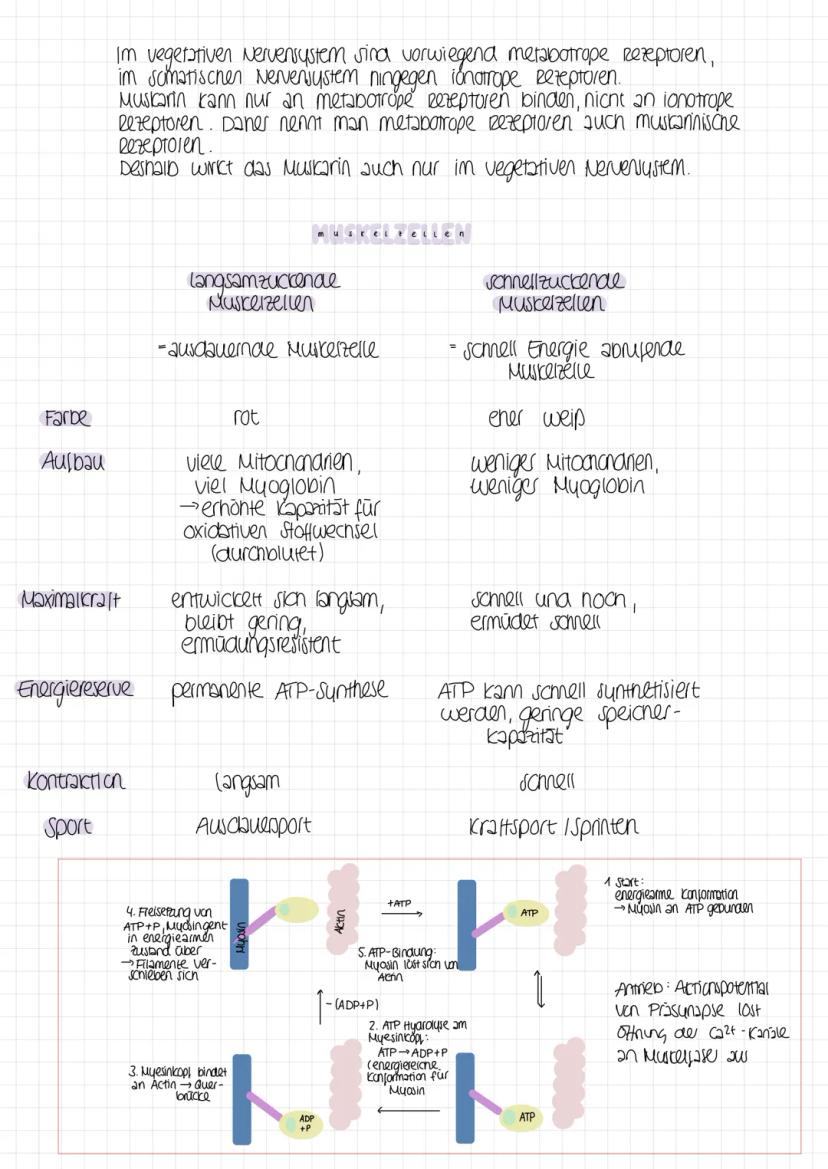 Im vegetativen Nervensystem sind vorwiegend metabotrope Rezeptoren,
im somatischen Nervensystem hingegen ionotrope Rezeptoren.
Muskarin kann nur an metabotrope Rezeptoren binden, nicht an ionotrope
Rezeptoren. Daher nennt man metabotrope Rezeptoren auch muskarinische
Rezeptoren.
Deshalb wirkt das Muskarin auch nur im vegetativen Nervensystem.
MUSKELZELLEN
muskelzellen
langsamzuckende
Muskelzellen
schnellzuckende
Muskelzellen
= ausdauernde Muskelzelle
= schnell Energie abrufende
Muskelzelle
Farbe
rot
eher weiß
Aufbau
viele Mitochondrien,
viel Myoglobin
→ erhöhte Kapazität für
oxidativen Stoffwechsel
(durchblutet)
weniger Mitochondrien,
weniger Myoglobin
Maximalkraft
entwickelt sich langsam,
bleibt gering,
ermüdungsresistent
schnell und hoch,
ermüdet schnell
Energiereserve
permanente ATP-Synthese
ATP kann schnell synthetisiert
werden, geringe Speicher-
kapazität
Kontraktion
langsam
schnell
Sport
Ausdauersport
Kraftsport / Sprinten
4. Freisetzung von
ATP+P, Myosin geht
in energiearmen
Zustand über
→ Filamente ver-
schieben sich
Myosin
Actin
+ATP
5. ATP-Bindung:
Myosin löst sich von
Actin
ATP
1. Start:
energiearme Konformation
→ Myosin an ATP gebunden
- (ADP+P)
Antrieb: Actionspotential
von Präsynapse löst
Öffnung der Ca2+-Kanäle
an Muskelfaser aus
3. Myosinkopf bindet
an Actin → Quer-
brücke
ADP
+P
2. ATP Hydrolyse am
Myosinkopf:
ATP → ADP+P
(energiereiche
Konformation für
Myosin
ATP